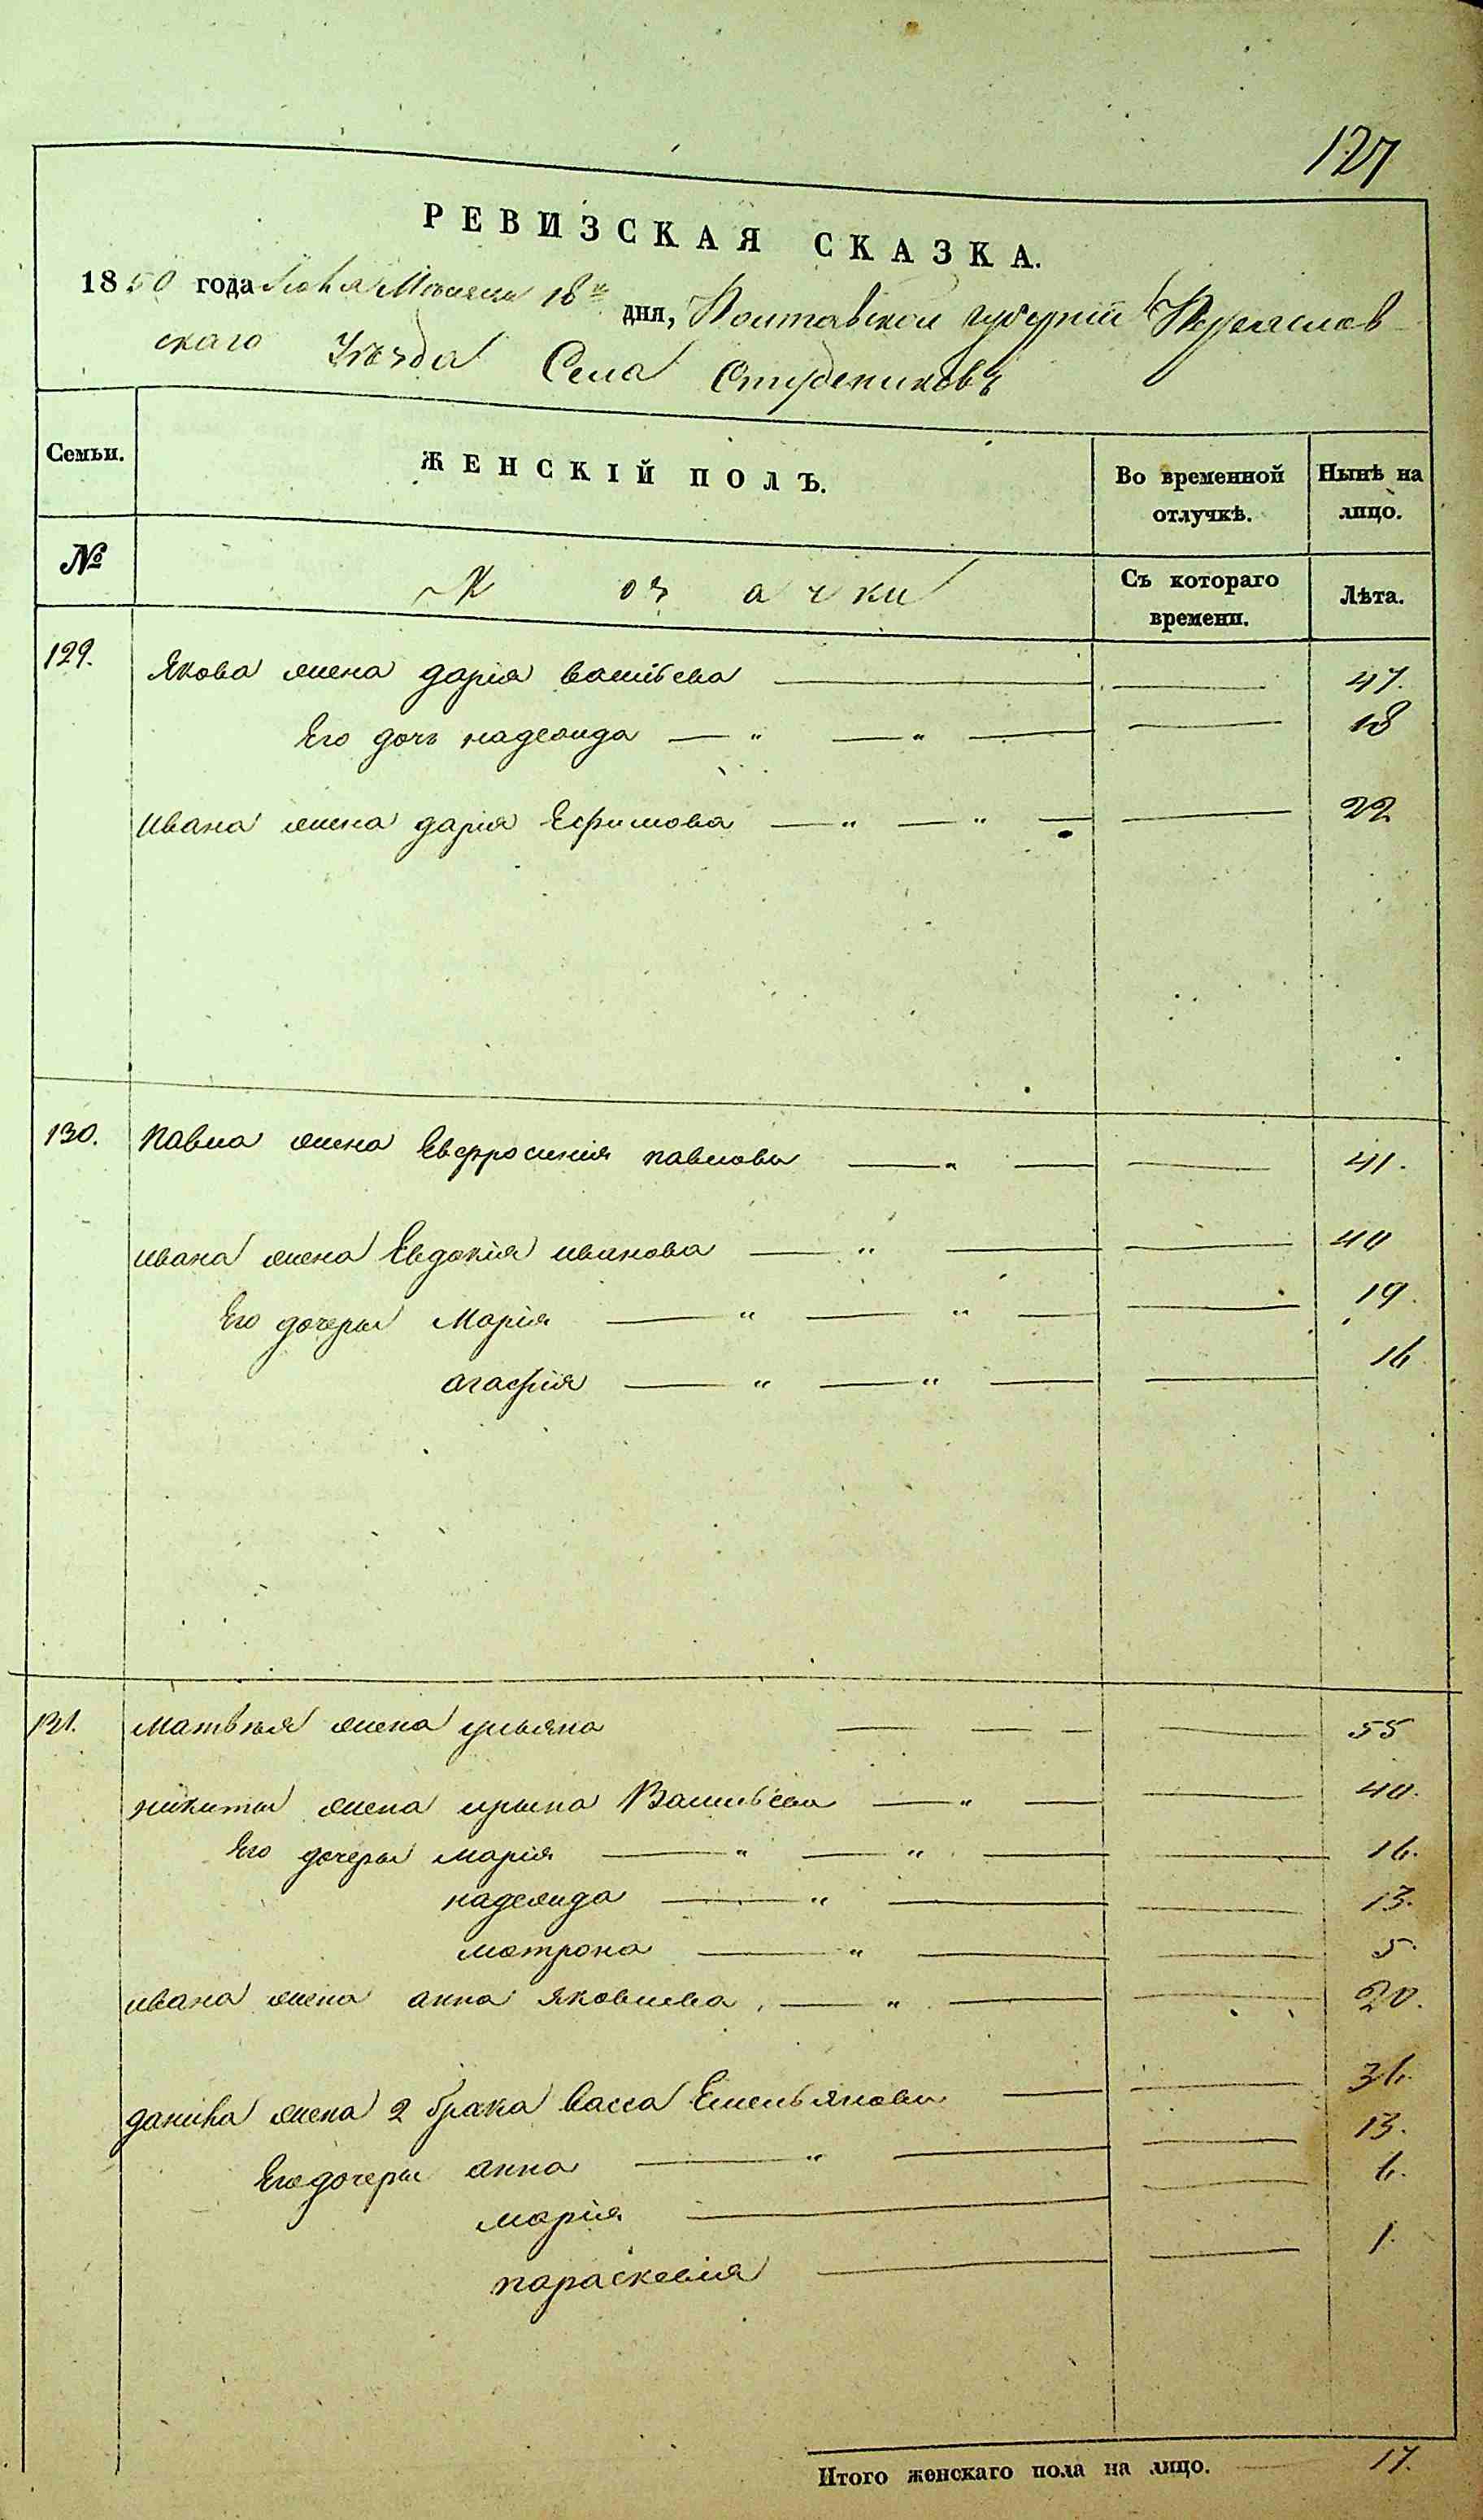 127
РЕВИЗСКАЯ СКАЗКА.
1850 года Іюня Мѣсяца 18го дня, Полтавской губерніи Переяслав-
скаго Уѣзда Села Студениковъ
Семьи. ЖЕНСКІЙ ПОЛЪ. Во временной отлучкѣ. Нынѣ на лицо.
№ Козачки Съ котораго времени. Лѣта.
129. Якова жена дарія васильева 47.
Его дочь надежда — " — " — 18
Ивана жена дарія Ефимова — " — " — 22
130. Павла жена Евфросинія павлова — " — 41.
ивана жена Евдокія иванова — " — 40
Его дочеры Марія — " — " — 19.
агафія — " — " — 16
131. матвѣя жена ульяна — — — 55
никиты жена ирына Васильева — " — 40.
Его дочеры марія — " — " — 16.
надежда — " — 13.
матрона — " — 5.
ивана жена анна яковлева — " — 20.
данила жена 2 брака васса Емельянова — 36.
Его дочеры анна — " — 13.
марія — 6.
параскевія — 1.
Итого женскаго пола на лицо. 17.